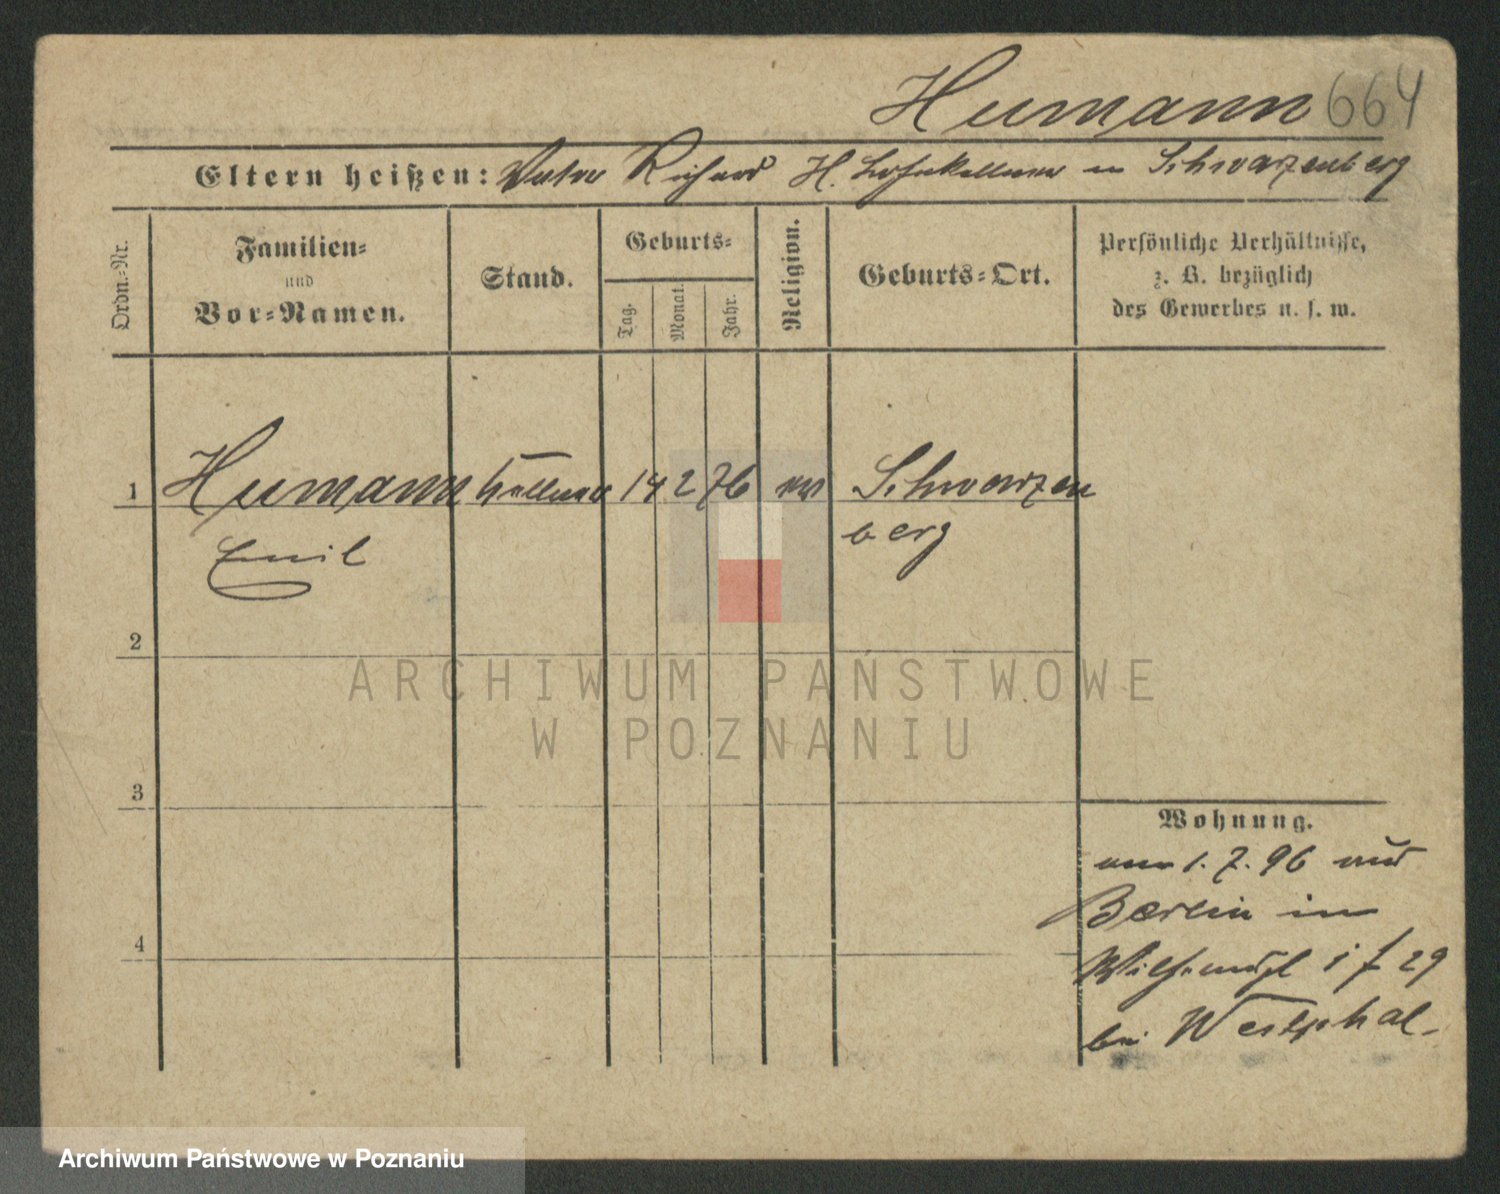 Humann 664
Eltern heißen: Vater Richard H. in Schwarzenberg
Ordn.=Nr.
Familien=
und
Vor=Namen.
Stand.
Geburts=
Tag.
Monat.
Jahr.
Religion.
Geburts=Ort.
Persönliche Verhältnisse,
z. B. bezüglich
des Gewerbes u. s. w.
1 Humann Kellner 14 2 76 ev Schwarzen
Emil berg
2
3
4
ARCHIWUM PAŃSTWOWE
W POZNANIU
Wohnung.
1. 7. 96 aus
Berlin in
29
bei Westphal
Archiwum Państwowe w Poznaniu